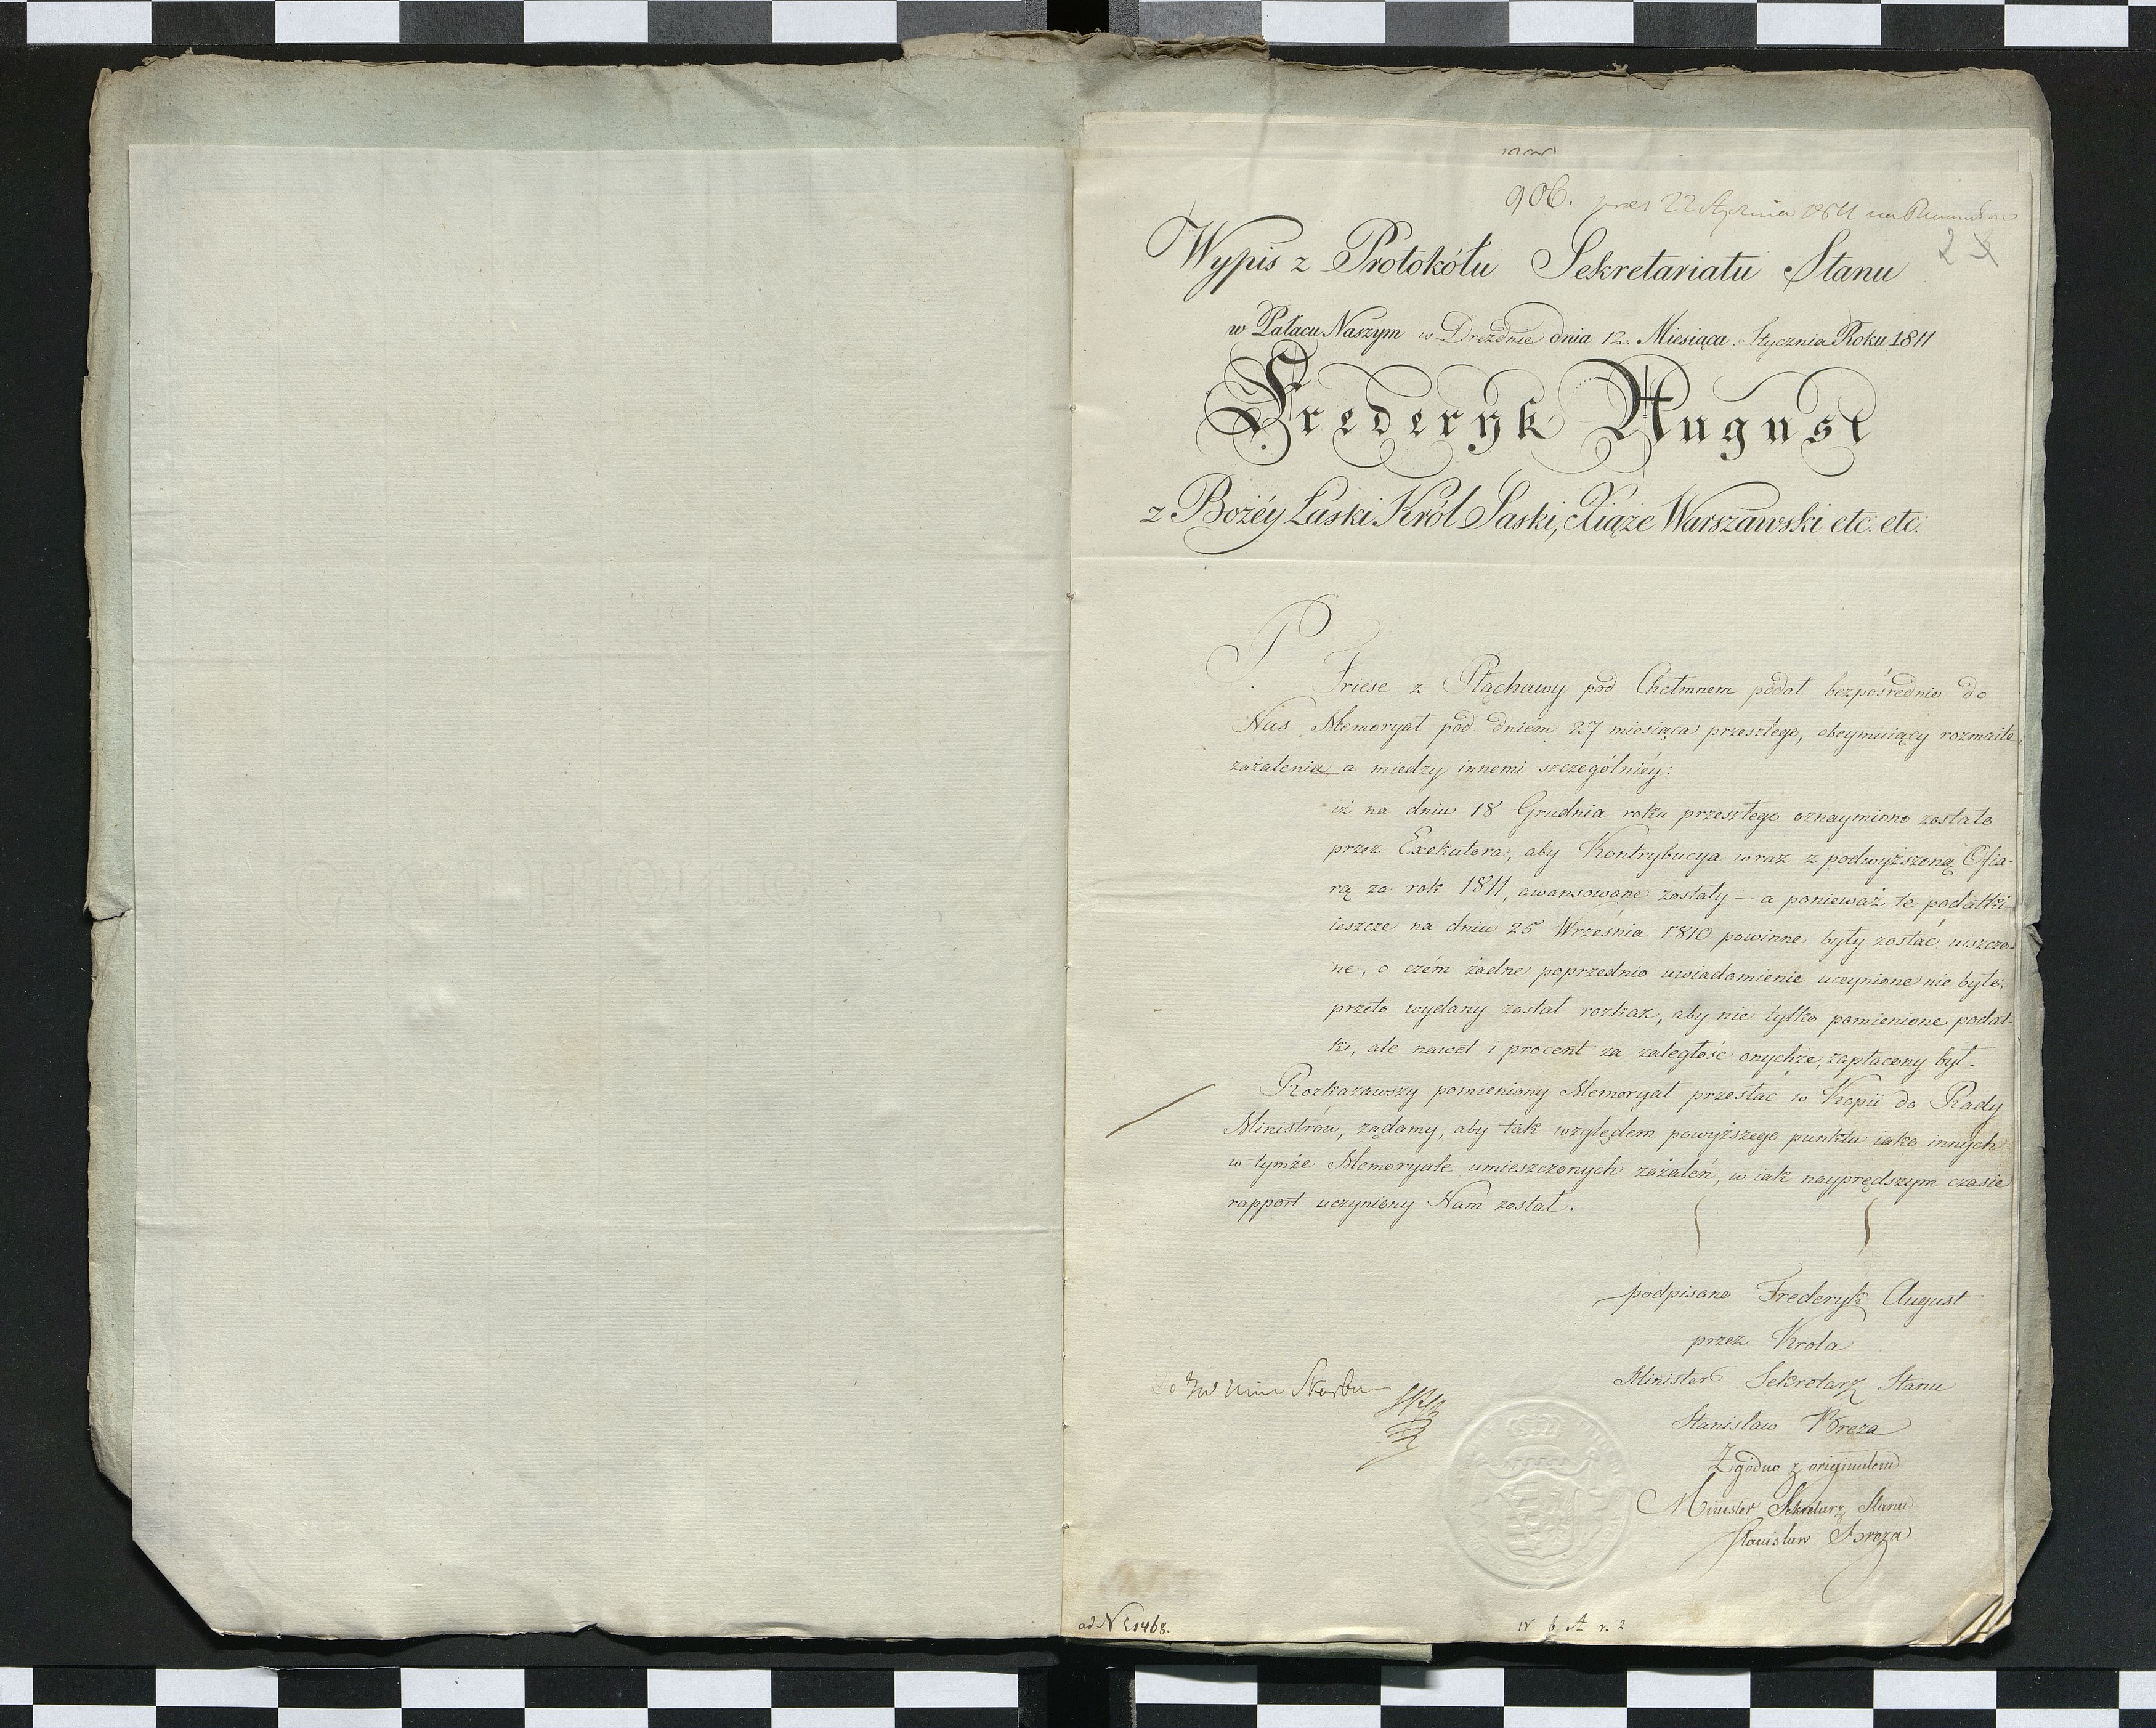 906. 22 Stycznia 1811
2
Wypis z Protokółu Sekretariatu Stanu
w Pałacu Naszym w Dreźdnie dnia 12. Miesiąca Stycznia Roku 1811
Frederyk August
z Bożéy Łaski Król Saski, Xiąże Warszawski etc: etc:
P. Friese z Płąchawy pod Chełmnem podał bezpośrednio do
Nas Memoryał pod dniem 27 miesiąca przeszłego, obeymuiący rozmaite
zażalenia a miedzy innemi szczególniéy:
iż na dniu 18 Grudnia roku przeszłego oznaymiono zostało
przez Exekutora, aby Kontrybucya wraz z podwyższoną Ofia-
rą za rok 1811, awansowane zostały — a ponieważ te podatki
ieszcze na dniu 25 Września 1810 powinne były zostać uiszczo-
ne, o czém żadne poprzednio uwiadomienie uczynione nie było;
przeto wydany został rozkaz, aby nie tylko pomienione podat-
ki, ale nawet i procent za zaległość onychże, zapłacony był.
Rozkazawszy pomieniony Memoryał przesłać w Kopii do Rady
Ministrów, żądamy, aby tak względem powyższego punktu iako innych
w tymże Memoryale umieszczonych zażaleń, w iak nayprędszym czasie
rapport uczyniony Nam został.
podpisano Frederyk August
przez Krola
Minister Sekretarz Stanu
Stanisław Breza
Zgodno z originałem
Minister Sekretarz Stanu
Stanisław Breza
Do Min Skarbu
ad N 1468.